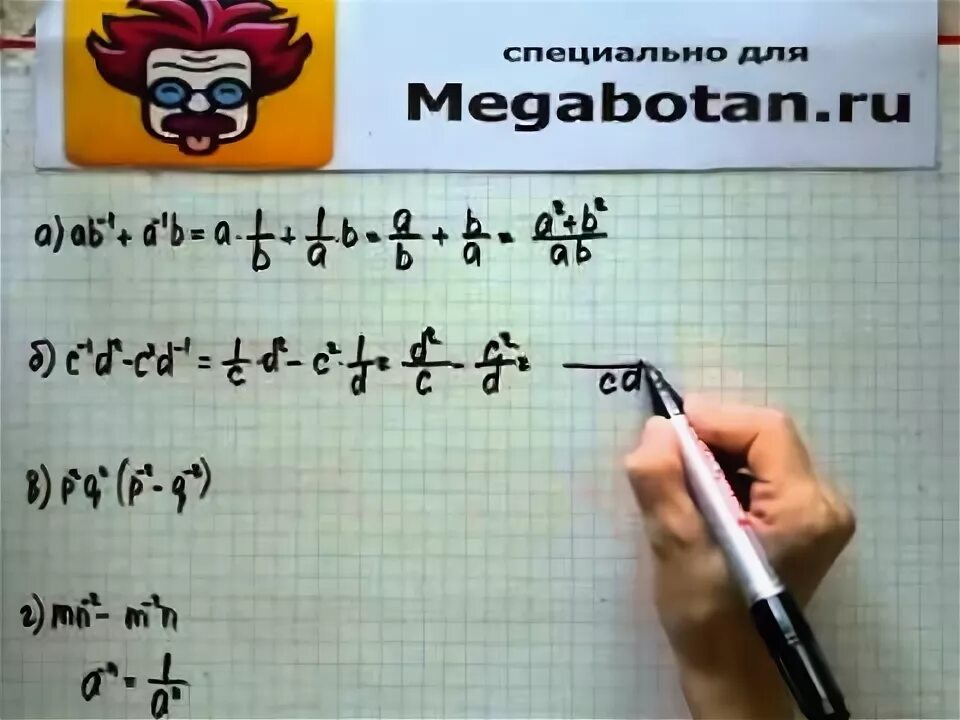 специально для
Megabotan.ru
а) ab⁻¹ + a⁻¹b = a · 1/b + 1/a · b = a/b + b/a = (a² + b²)/(ab)
б) c⁻¹d² - c²d⁻¹ = 1/c · d² - c² · 1/d = d²/c - c²/d = /(cd)
в) p²q²(p⁻² - q⁻²)
г) mn⁻² - m⁻²n
a⁻ⁿ = 1/aⁿ